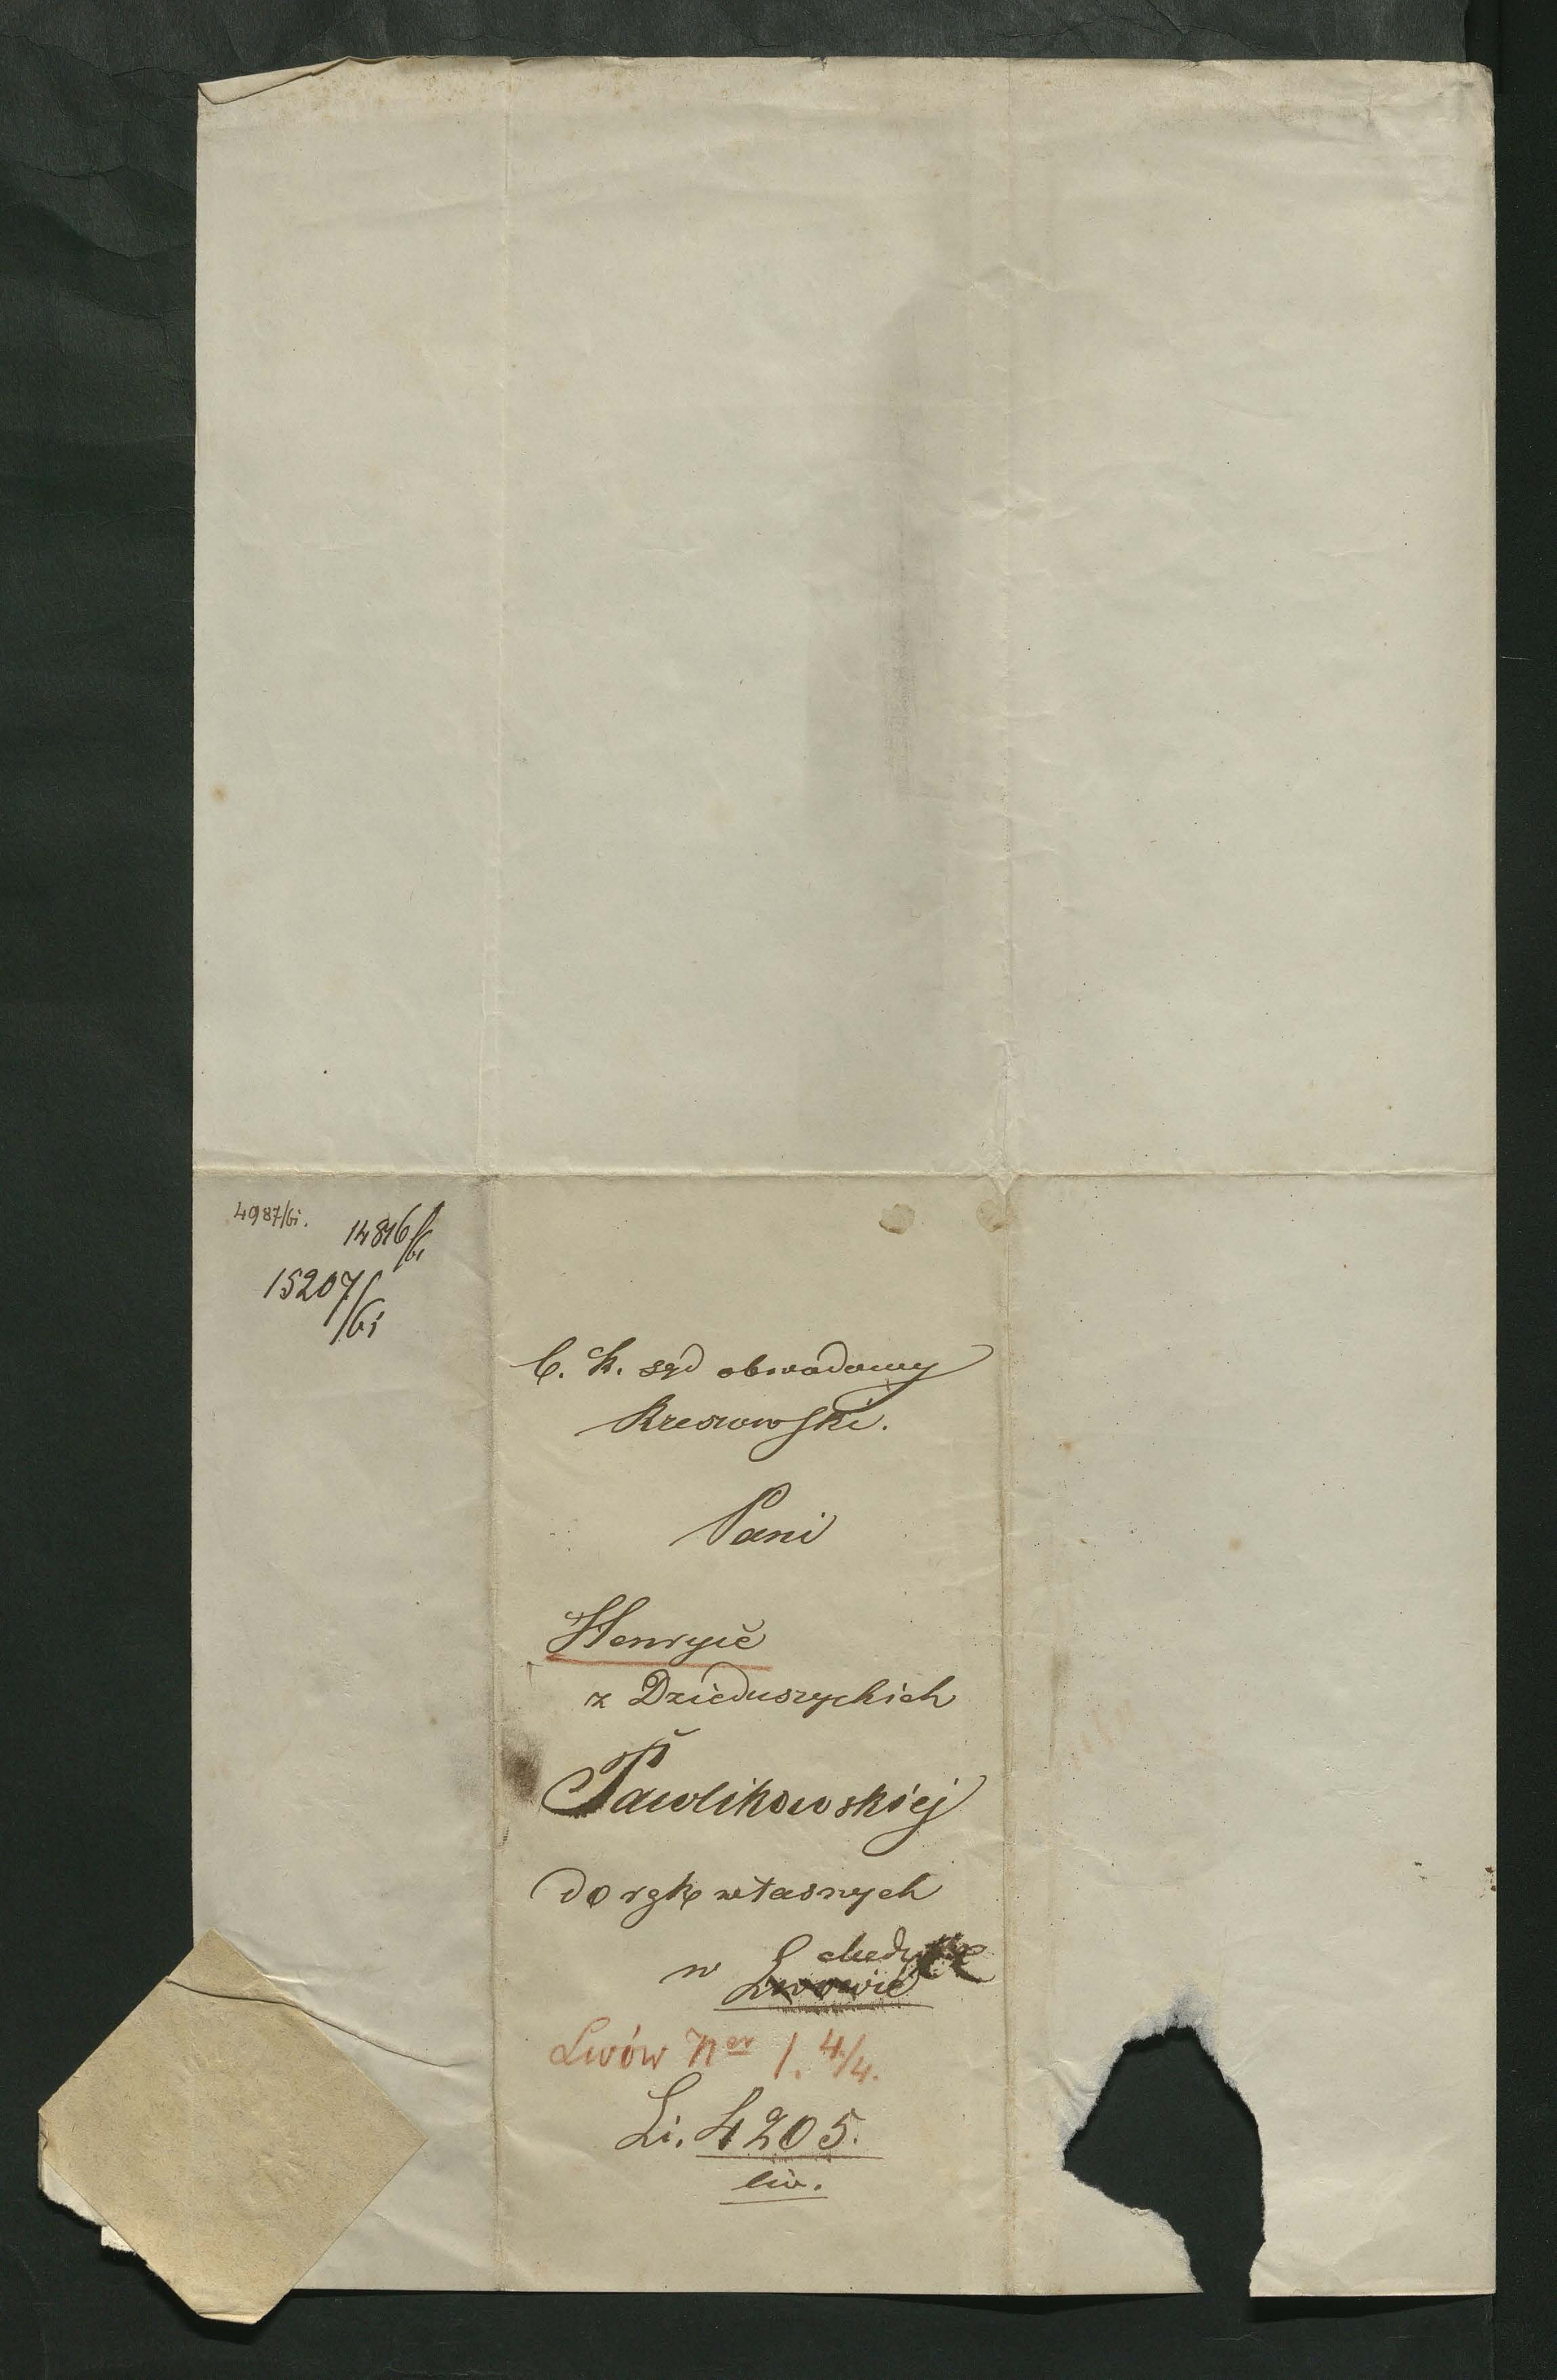 4987/61.
14816/61
15207/61
C. K. sąd obwodowy
Rzeszowski.
Pani
Henryce
z Dzieduszyckich
Pawlikowskiej
do rąk własnych
w Lwowie
Lwów Ner 1. 4/4.
Li. 4205.
civ.